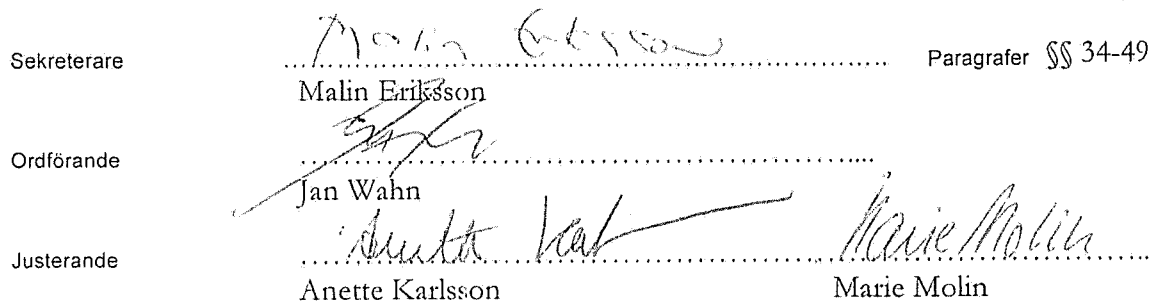 Malin Eriksson
Sekreterare Paragrafer §§ 34-49
Malin Eriksson
Ordförande
Jan Wahn
Justerande Anette Karl Marie Molin
Anette Karlsson Marie Molin